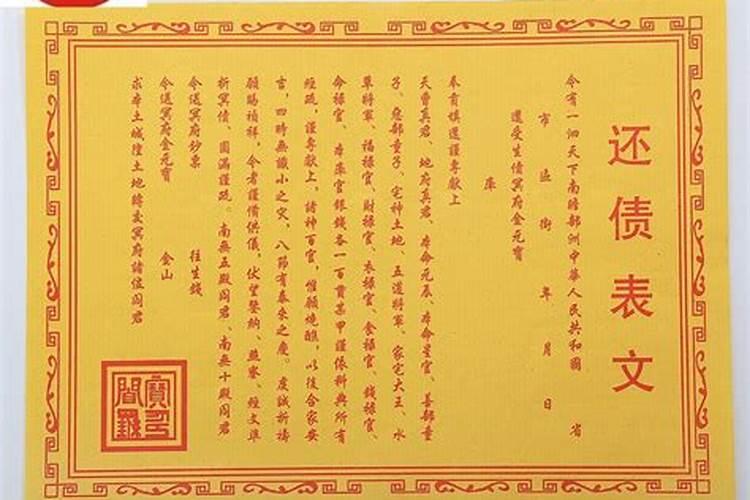 还债表文
今有一泗天下南瞻部洲中華人民共和國 省
市 區 街 年 月 日
還受生債冥府金元寶
庫
奉育填還謹專獻上
天曹真君、地府真君、本命元辰、本命星官、善部童
子、惡部童子、宅神土地、五道將軍、家宅大王、水
草將軍、福祿官、財祿官、衣祿官、食祿官、錢祿官、
命祿官、本庫官銀錢各一百貫某甲謹依科典所有
經疏，謹專獻上，諸神百官，惟願燒醮，以後合家安
吉，四時無識小之灾，八節有泰來之慶。虔誠祈禱
願賜禎祥，今者謹備供儀，伏望鑒納、燕寥、經文準
折冥債、圓滿謹疏。南無五殿阎君、南無十殿阎君
令送冥府鈔票 往生錢
令送冥府金元寶 金山
求本土城隍土地轉交冥府諸位阎君